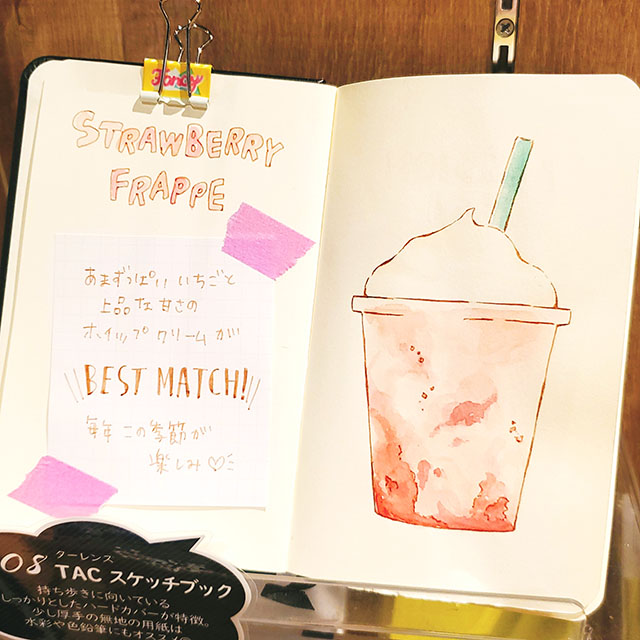 Fancy
STRAWBERRY
FRAPPE
あまずっぱい いちごと
上品な甘さの
ホイップクリームが
BEST MATCH!
毎年 この季節が
楽しみ♡
08
クーレンス
TAC スケッチブック
持ち歩きに向いている
しっかりとしたハードカバーが特徴。
少し厚手の無地の用紙は
水彩や色鉛筆にもオススメ